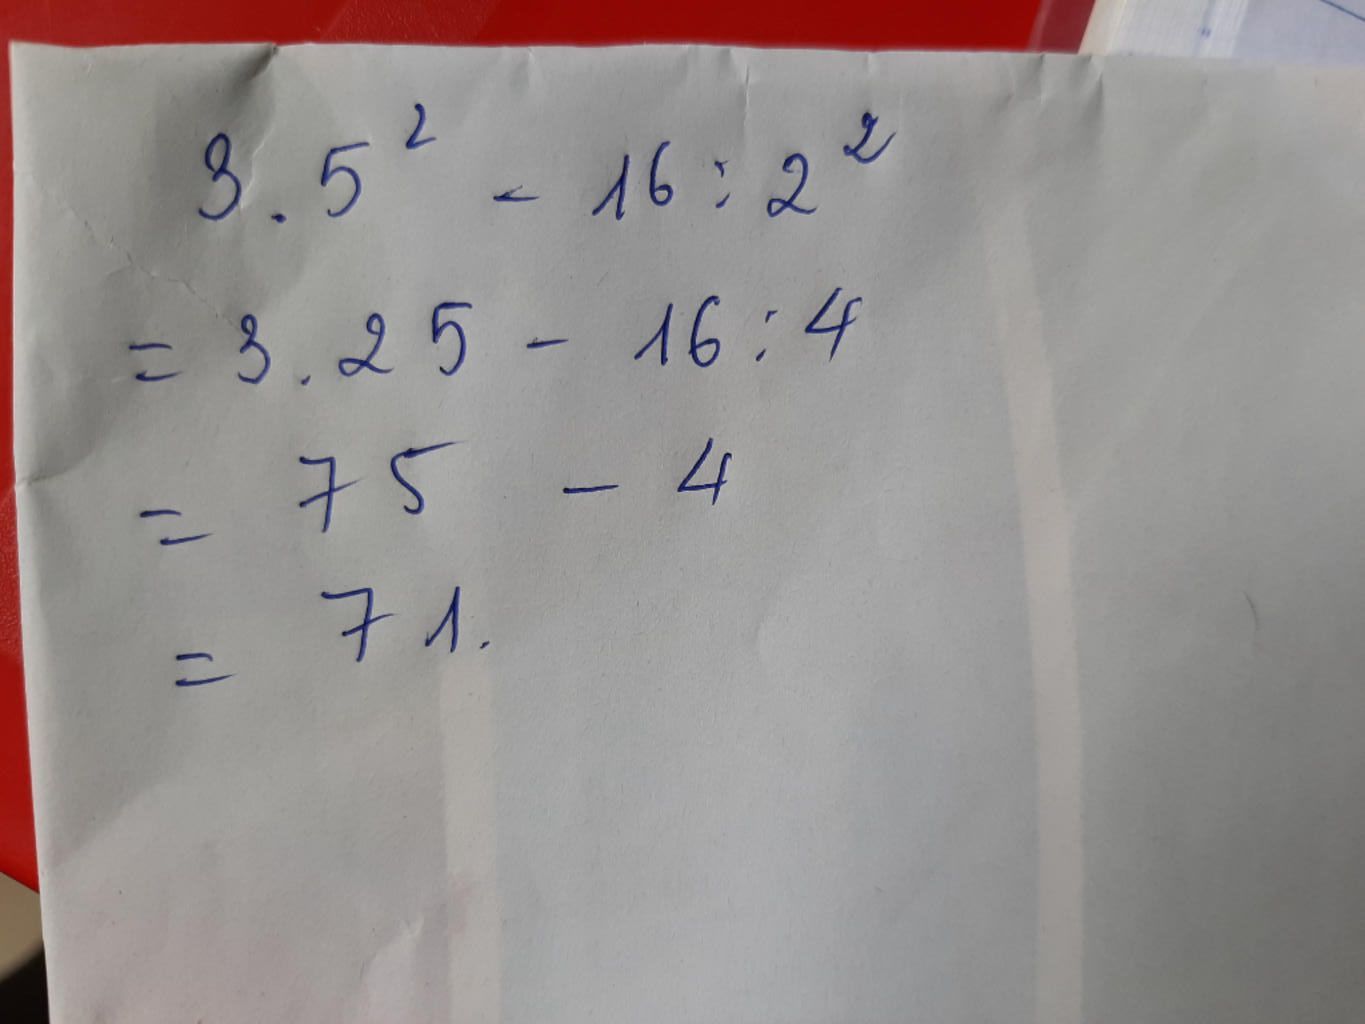 3.5² - 16:2²
= 3.25 - 16:4
= 75 - 4
= 71.